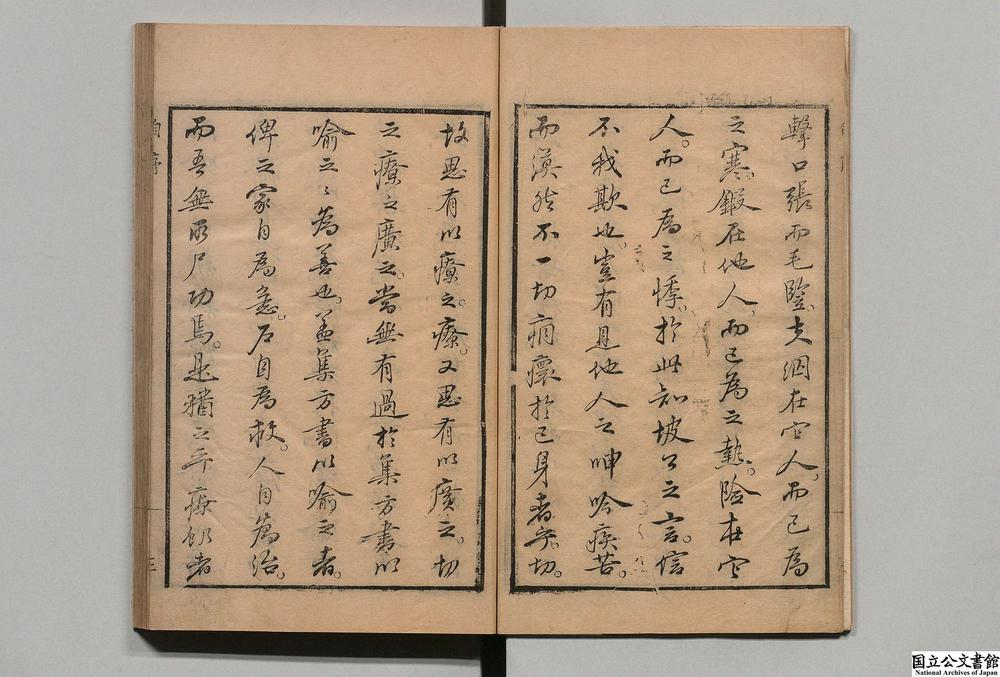 擊口張而毛豎。夫網在它人。而己為
之寒。鍛在他人。而己為之熱。險在它
人。而己為之悸。於此知坡公之言。信
不我欺也。豈有見他人之呻吟疾苦。
而漠然不一切痌瘝於己身者乎。切。
故思有以療之。療又思有以廣之。切
之療之廣之。當無有過於集方書以
喻之之為善也。盖集方書以喻之者。
俾之家自為意。戶自為救。人自為治。
而吾無尺功焉。是猶之乎療飢者
自序
三
国立公文書館
National Archives of Japan